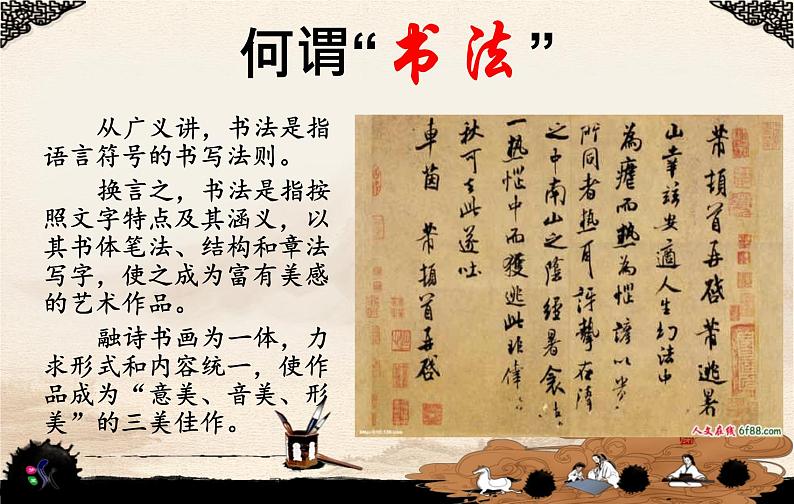 何谓“书法”
从广义讲，书法是指
语言符号的书写法则。
换言之，书法是指按
照文字特点及其涵义，以
其书体笔法、结构和章法
写字，使之成为富有美感
的艺术作品。
融诗书画为一体，力
求形式和内容统一，使作
品成为“意美、音美、形
美”的三美佳作。
芾頓首再啓芾逃暑
山幸兹安適人生幻法中
為瘧而熱為惱諺以貴
所同者熱耳訝摯在陰
之中南山之陰經暑衾
一熱惱中而獲逃此非偉
秋可去此遂吐
車茵 芾頓首再啓
人文在线 6f88.com